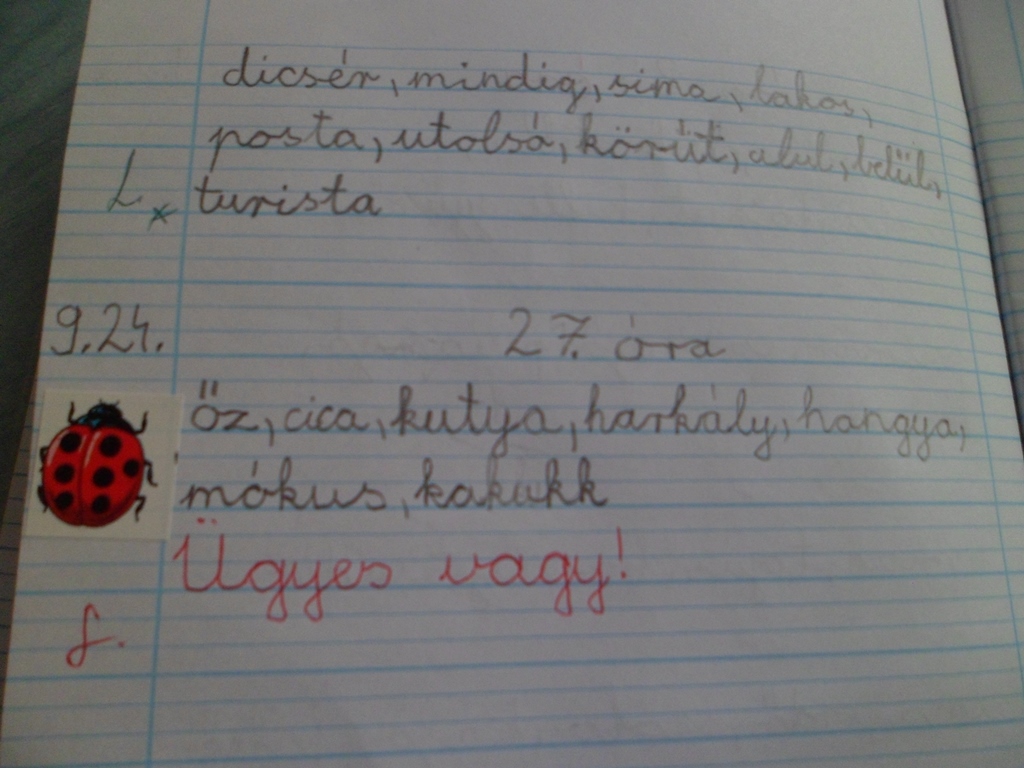 dicsér, mindig, sima, lakos,
posta, utolsó, körút, alul, belül,
L turista
9.24. 27. óra
Őz, cica, kutya, harkály, hangya,
mókus, kakukk
Ügyes vagy!
f.